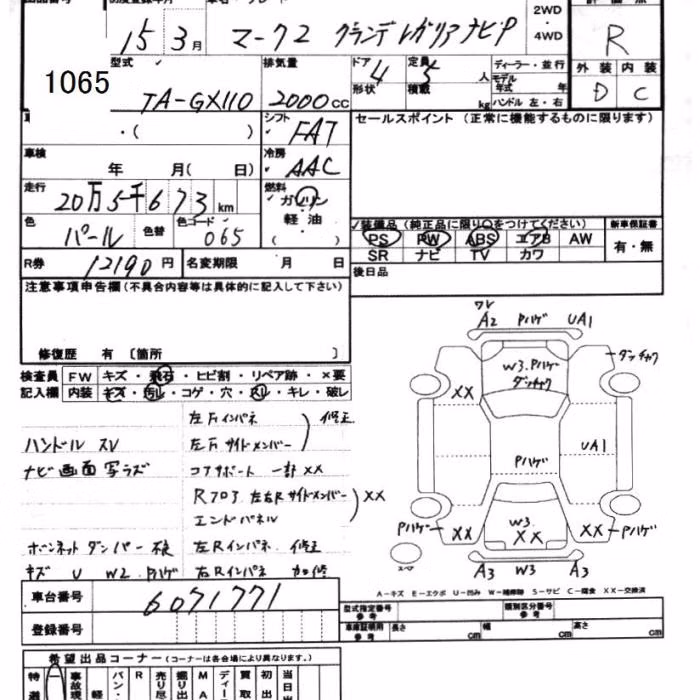 2WD
4WD
15 3月 マークⅡ グランデ レガリア ナビP
R
1065
型式 排気量 ドア 4 定員 5 人 ディーラー・並行
形状 積載 モデル年式 年 外装 内装
TA-GX110 2000cc kg ハンドル 左・右 D C
・( ) シフト FAT セールスポイント (正常に機能するものに限ります)
車検 年 月( 日) 冷房 AAC
走行 20万5千673km 燃料 ガソリン
軽油
色 パール 色替 色コード 065 ( ・ )
装備品 (純正品に限り〇をつけてください) 新車保証書
PS PW ABS エアB AW 有・無
SR ナビ TV カワ
R券 12190円 名変期限 月 日 後日品
注意事項申告欄 (不具合内容等は具体的に記入して下さい)
修復歴 有 〔箇所 〕
検査員 FW キズ・飛石・ヒビ割・リペア跡・×要
記入欄 内装 キズ・汚レ・コゲ・穴・スレ・キレ・破レ
左Fインパネ 修正
ハンドル スレ 左Fサイドメンバー
ナビ画面 写ラズ コアサポート 一部 XX
Rフロア 左右Rサイドメンバー XX
エンドパネル
ボンネットダンパー 不良 左Rインパネ 修正
キズ U W2 Pハゲ 右Rインパネ 加修
ワレ
A2 Pハゲ UA1
W3.Pハゲ ダッチャク
ダッチャク
XX
UA1
Pハゲ
Pハゲ XX W3. XX XX Pハゲ
スペア
A3 W3 A3
A－キズ E－エクボ U－凹み W－補修跡 S－サビ C－腐食 XX－交換済
車台番号 6071771
登録番号
型式指定番号 参考 類別区分番号 参考
車庫証明用 参考 長さ cm 幅 cm 高さ cm
希望出品コーナー (コーナーは各会場により異なります。)